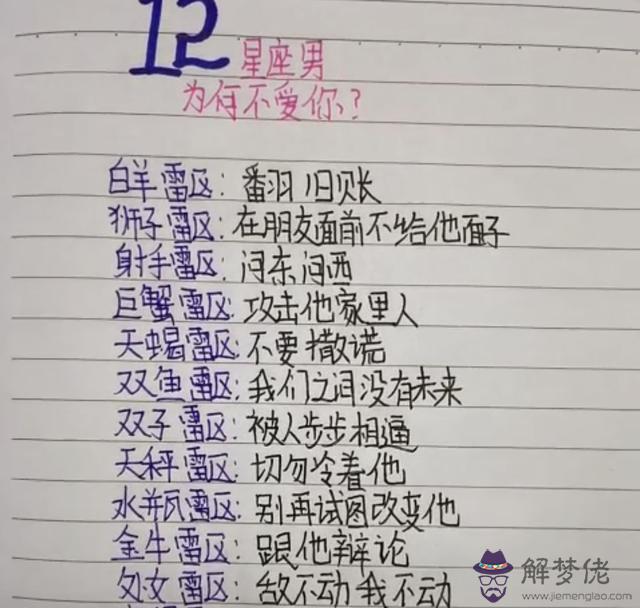 12
星座男
为何不爱你?
白羊雷区: 翻旧账
狮子雷区: 在朋友面前不给他面子
射手雷区: 问东问西
巨蟹雷区: 攻击他家里人
天蝎雷区: 不要撒谎
双鱼雷区: 我们之间没有未来
双子雷区: 被人步步相逼
天秤雷区: 切勿冷着他
水瓶雷区: 别再试图改变他
金牛雷区: 跟他辩论
处女雷区: 敌不动我不动
解梦佬
www.jiemenglao.com